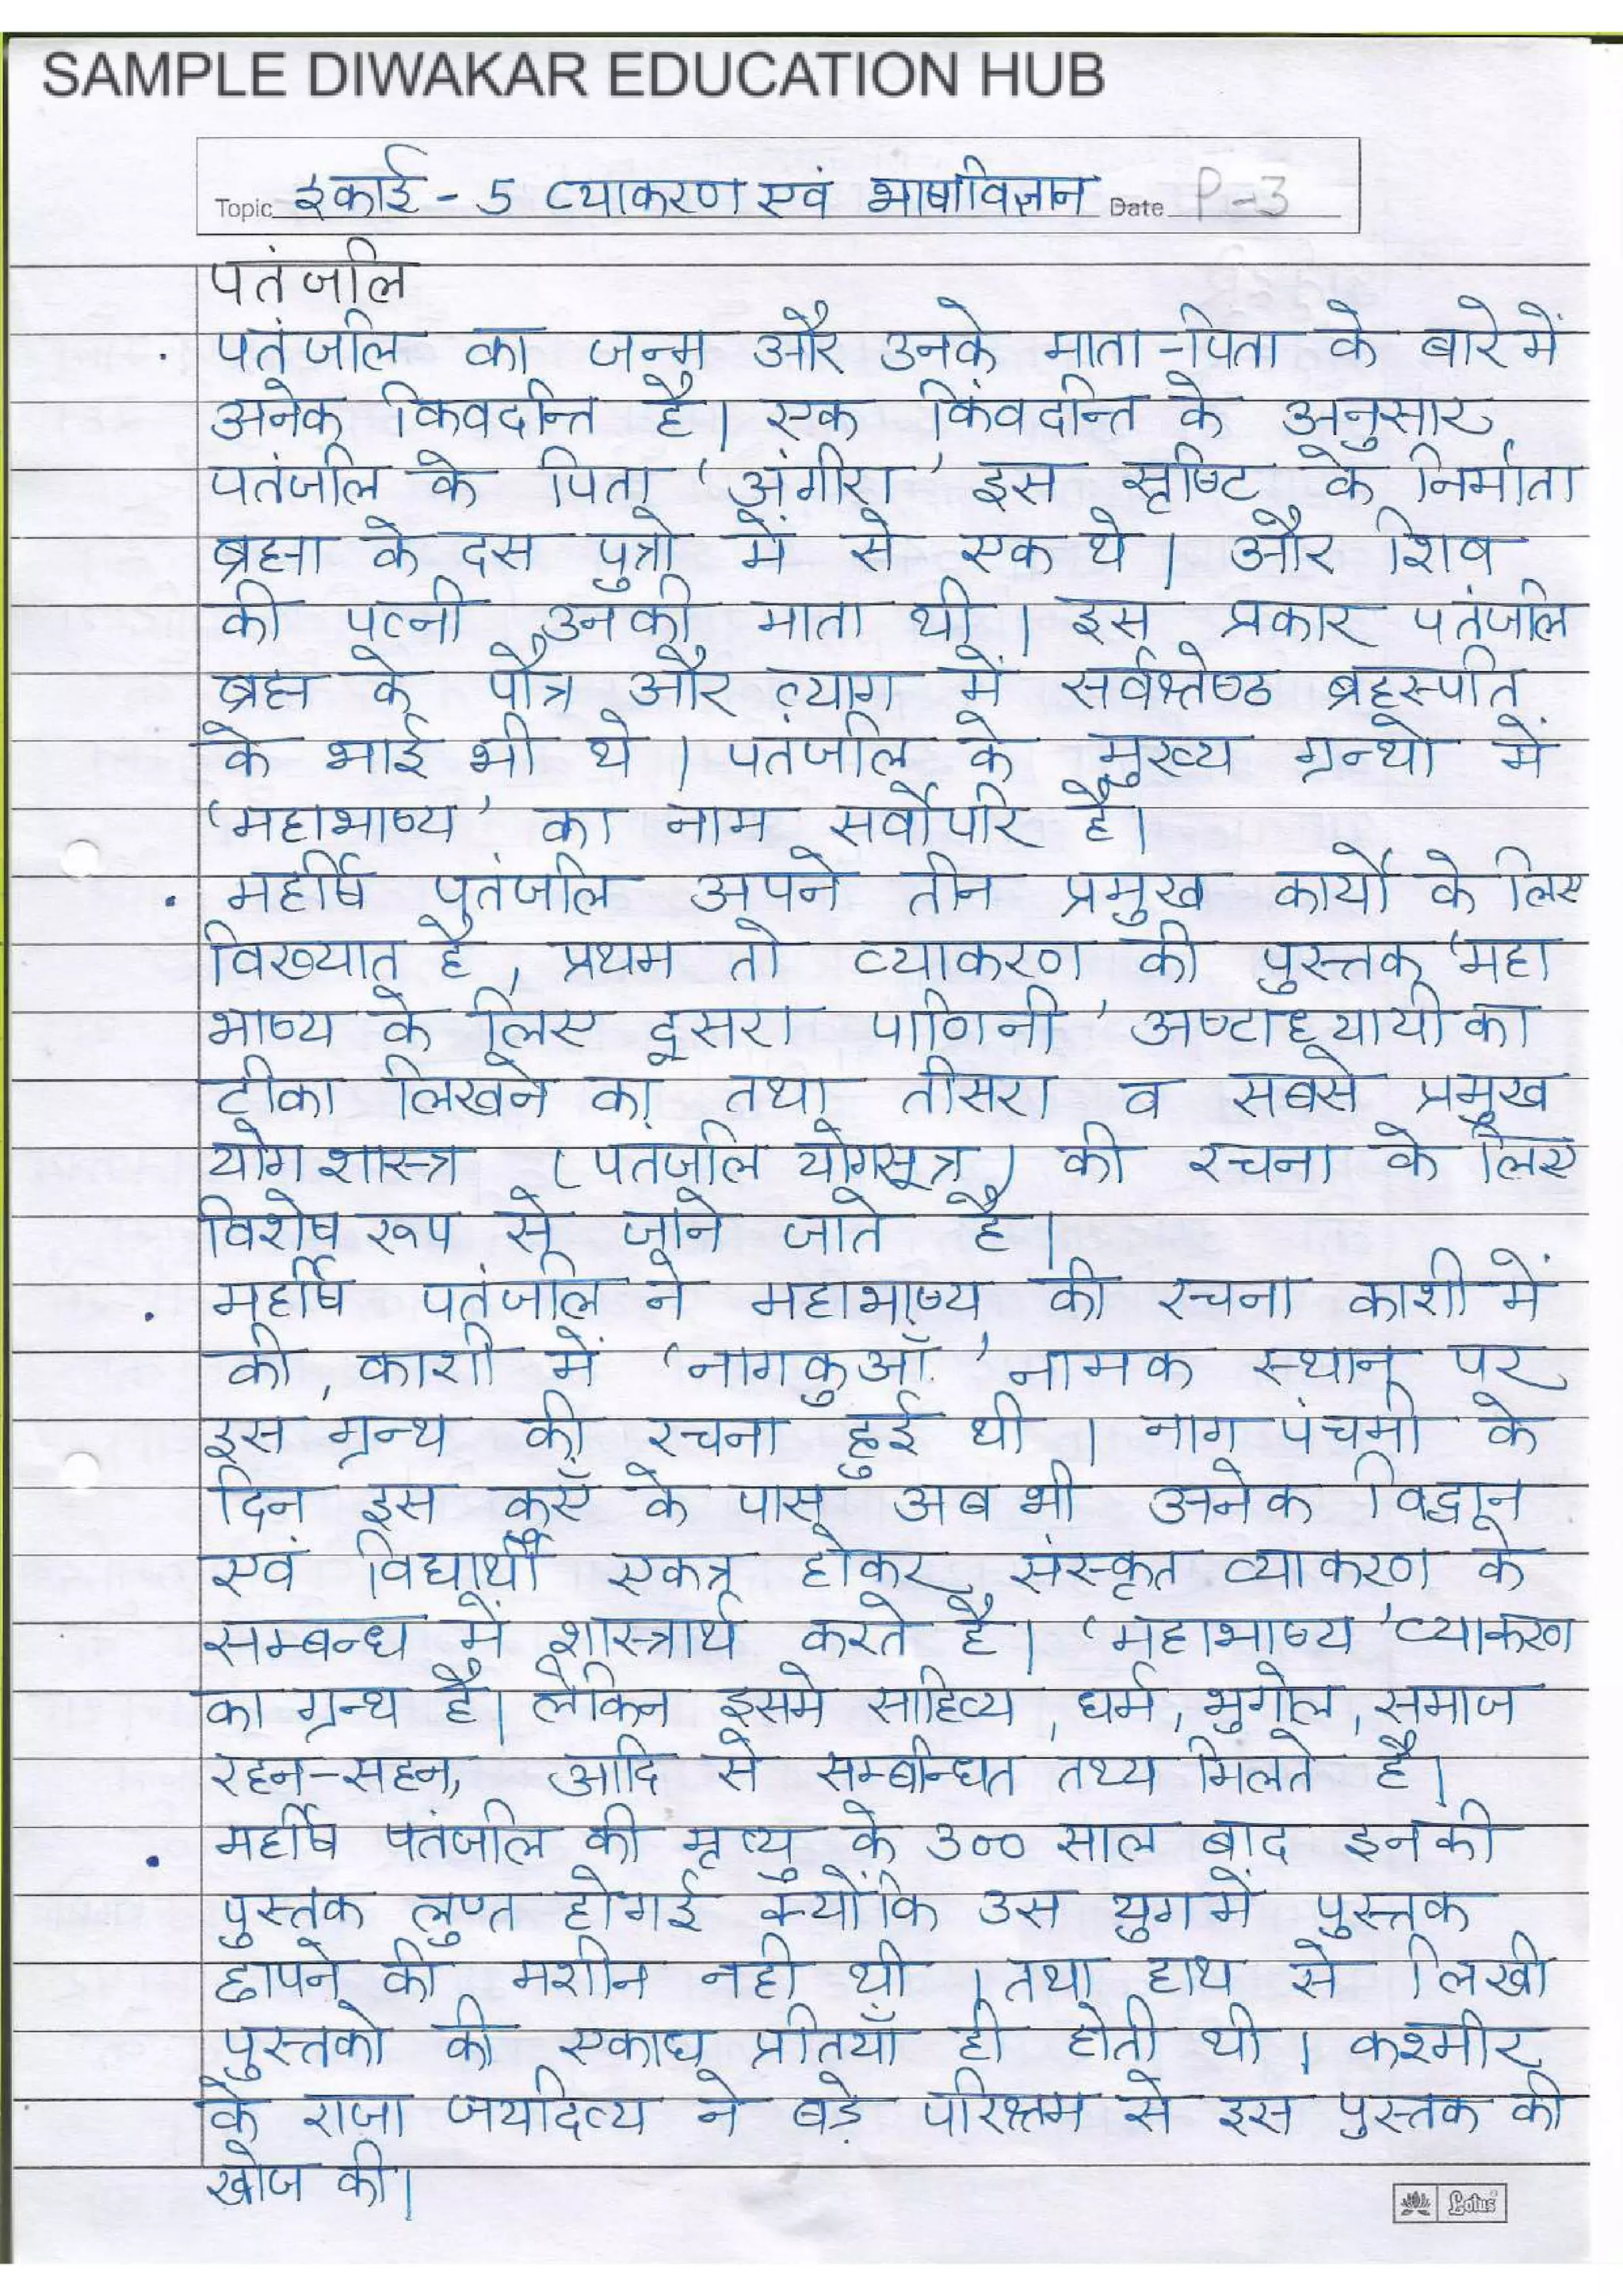 SAMPLE DIWAKAR EDUCATION HUB
Topic इकाई - 5 व्याकरण एवं भाषाविज्ञान Date P-3
पतंजलि
. पतंजलि का जन्म और उनके माता-पिता के बारे में
अनेक किवदन्ति है। एक किंवदन्ति के अनुसार
पतंजलि के पिता 'अंगीरा' इस सृष्टि के निर्माता
ब्रह्मा के दस पुत्रो में से एक थे। और शिव
की पत्नी उनकी माता थी। इस प्रकार पतंजलि
ब्रह्म के पौत्र और त्याग में सर्वश्रेष्ठ ब्रहस्पति
के भाई भी थे। पतंजलि के मुख्य ग्रन्थो में
'महाभाष्य' का नाम सर्वोपरि है।
. महर्षि पतंजलि अपने तीन प्रमुख कार्यो के लिए
विख्यात है, प्रथम तो व्याकरण की पुस्तक 'महा
भाष्य के लिए दूसरा पाणिनी 'अष्टाध्यायी का
टीका लिखने का तथा तीसरा व सबसे प्रमुख
योग शास्त्र (पतंजलि योगसूत्र) की रचना के लिए
विशेष रूप से जाने जाते है।
. महर्षि पतंजलि ने महाभाष्य की रचना काशी में
की, काशी में 'नागकुआँ' नामक स्थान पर
इस ग्रन्थ की रचना हुई थी। नाग पंचमी के
दिन इस कुएँ के पास अब भी अनेक विद्वान
एवं विद्यार्थी एकत्र होकर संस्कृत व्याकरण के
सम्बन्ध में शास्त्रार्थ करते है। 'महाभाष्य' व्याकरण
का ग्रन्थ है। लेकिन इसमे साहित्य, धर्म, भुगोल, समाज
रहन-सहन, आदि से सम्बन्धित तथ्य मिलते है।
. महर्षि पतंजलि की मृत्यु के 300 साल बाद इनकी
पुस्तक लुप्त होगई क्योंकि उस युग में पुस्तक
छापने की मशीन नही थी। तथा हाथ से लिखी
पुस्तको की एकाध प्रतियाँ ही होती थी। कश्मीर
के राजा जयादित्य ने बड़े परिश्रम से इस पुस्तक की
खोज की।
Lotus